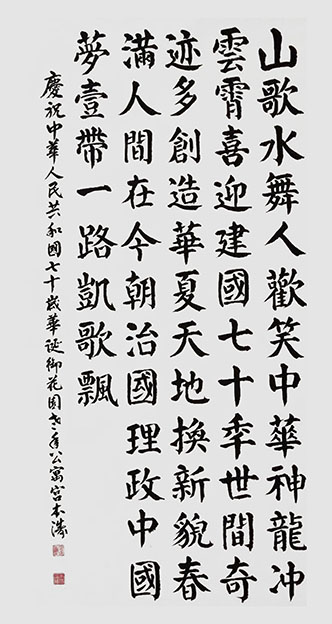 山歌水舞人歡笑中華神龍冲
雲霄喜迎建國七十秊世間奇
迹多創造華夏天地換新貌春
滿人間在今朝治國理政中國
夢壹帶一路凱歌飄
慶祝中華人民共和國七十歲華誕御花園老年公寓宮本